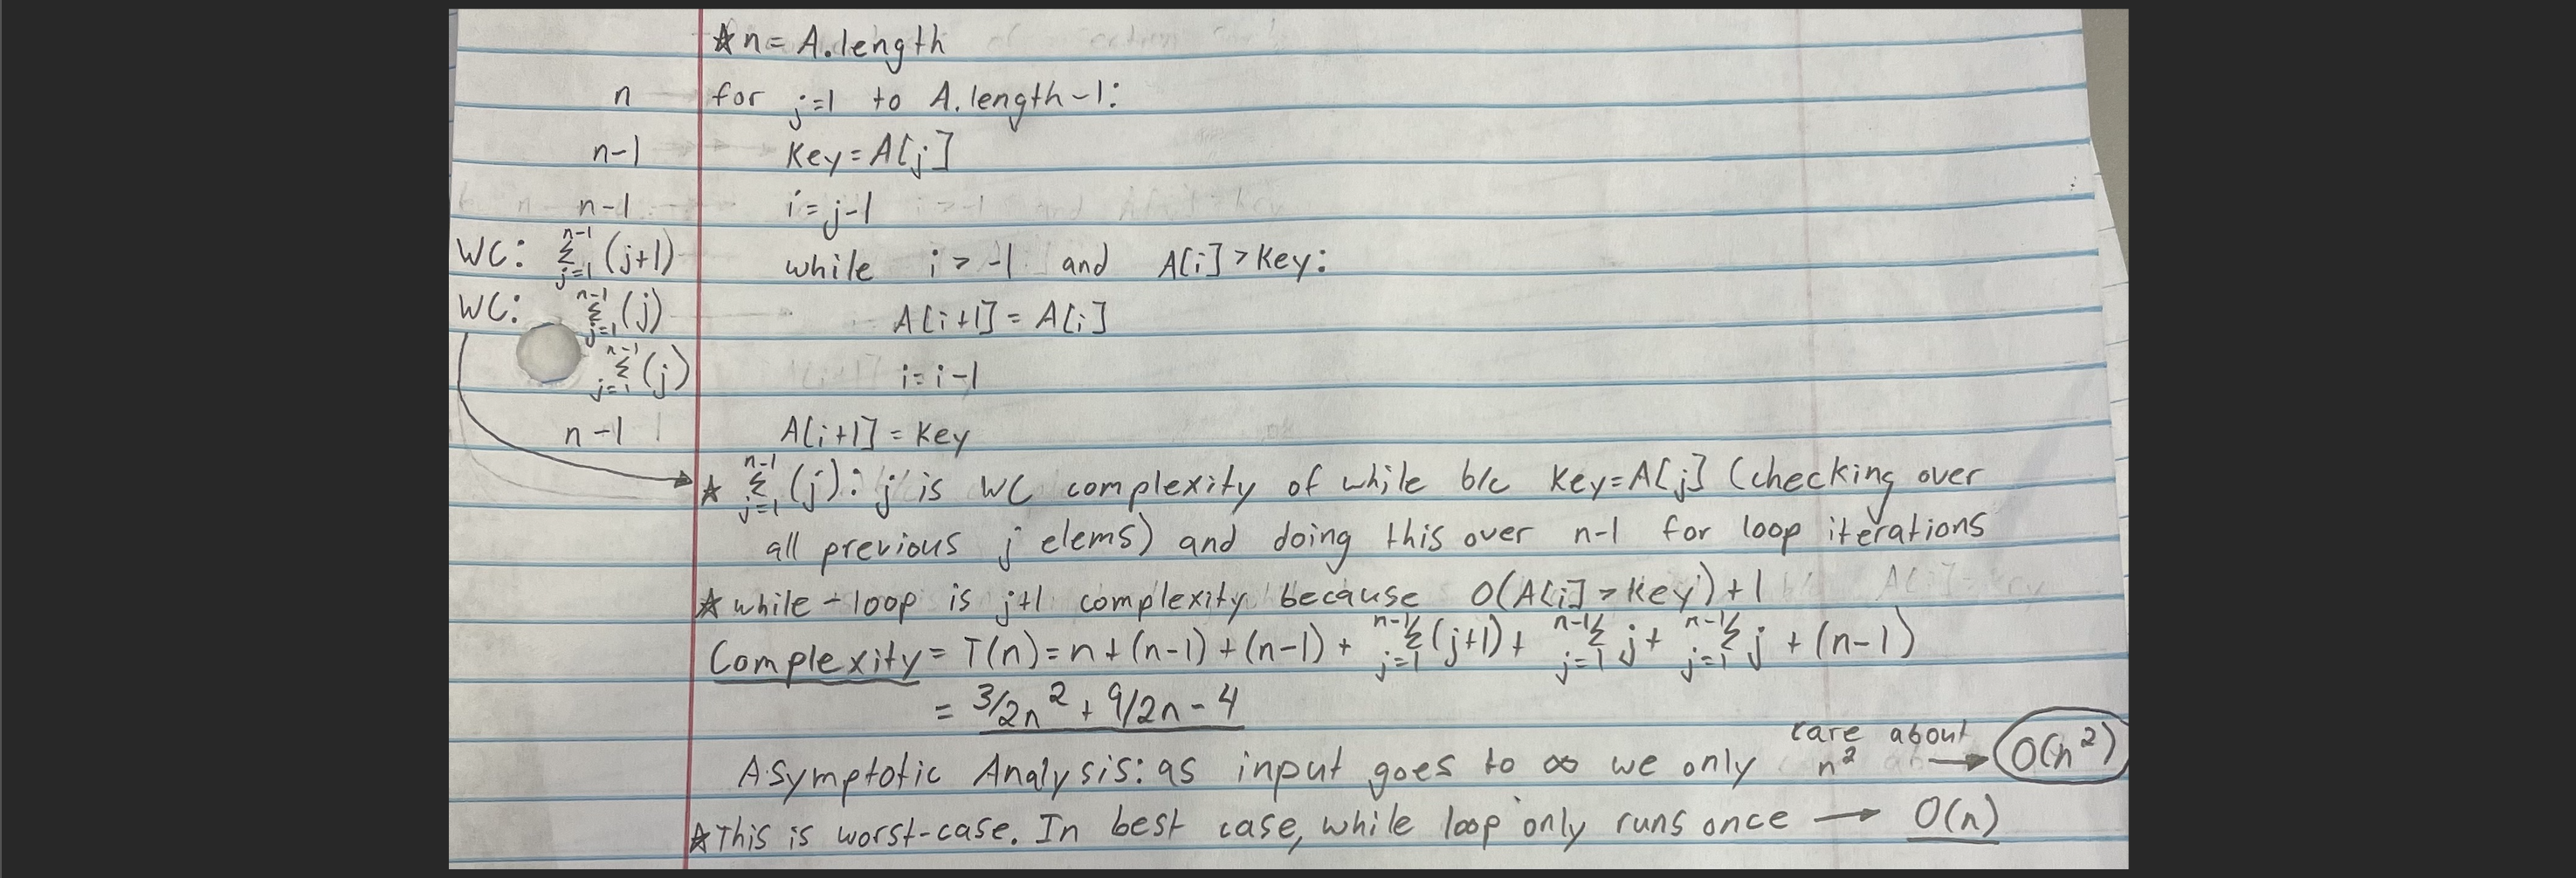 ☆ n = A.length
n for j=1 to A.length-1:
n-1 Key = A[j]
n-1 i = j-1
WC: n-1 Σ j=1 (j+1) while i > -1 and A[i] > Key:
WC: n-1 Σ j=1 (j) A[i+1] = A[i]
n-1 Σ j=1 (j) i = i-1
n-1 A[i+1] = Key
☆ n-1 Σ j=1 (j): j is WC complexity of while b/c Key=A[j] (checking over
all previous j elems) and doing this over n-1 for loop iterations
☆ while-loop is j+1 complexity because O(A[i] > Key)+1
Complexity = T(n) = n + (n-1) + (n-1) + n-1 Σ j=1 (j+1) + n-1 Σ j=1 j + n-1 Σ j=1 j + (n-1)
= 3/2n² + 9/2n - 4
Asymptotic Analysis: as input goes to ∞ we only care about n² → O(n²)
☆ This is worst-case. In best case, while loop only runs once → O(n)